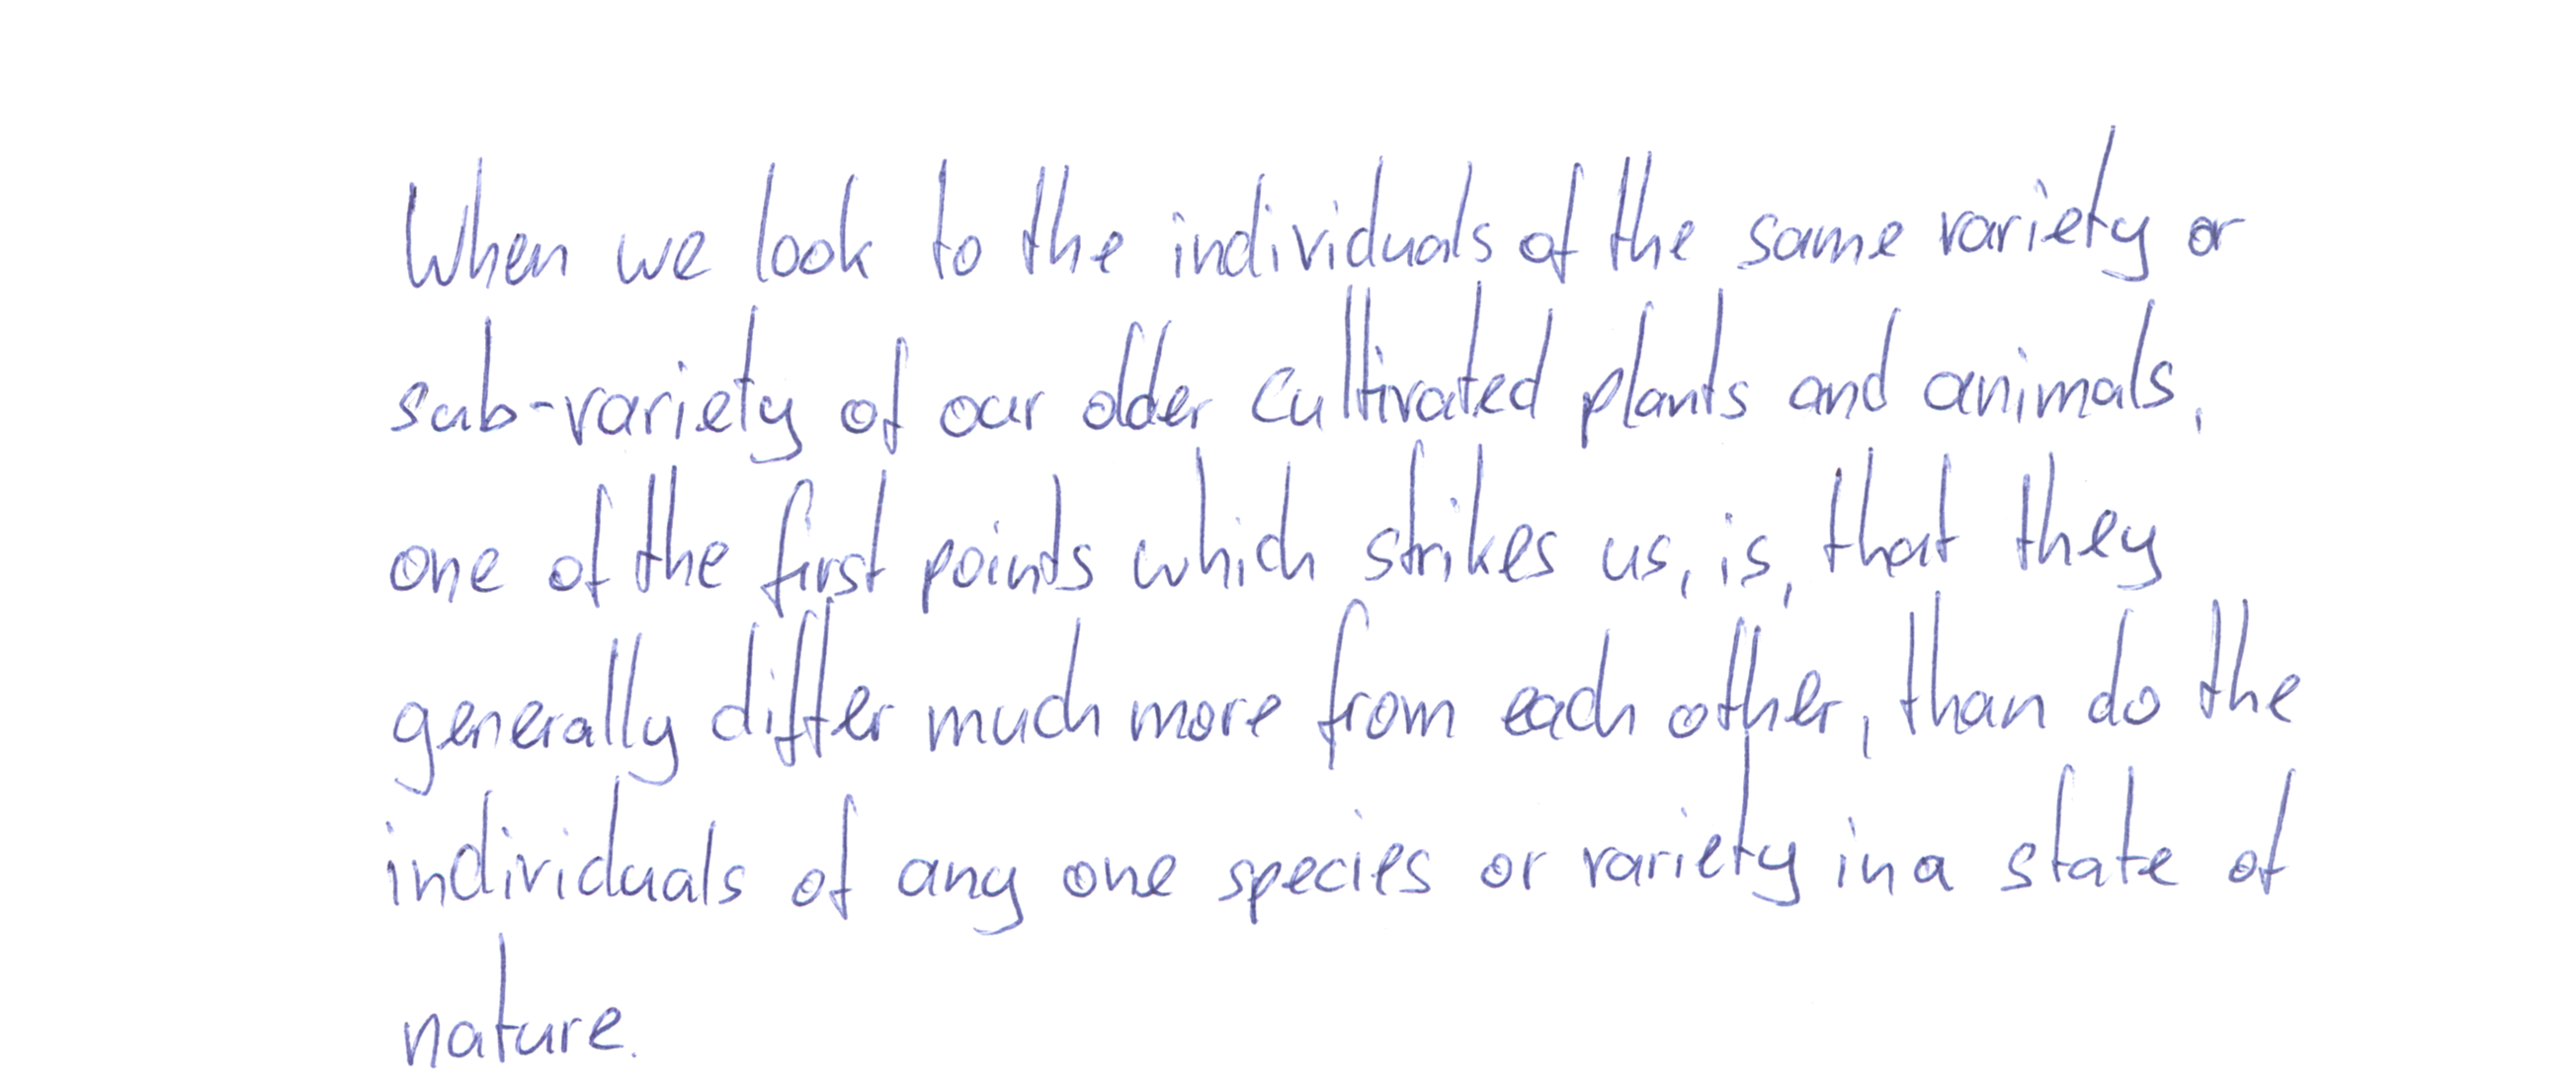 When we look to the individuals of the same variety or
sub-variety of our older cultivated plants and animals,
one of the first points which strikes us, is, that they
generally differ much more from each other, than do the
individuals of any one species or variety in a state of
nature.